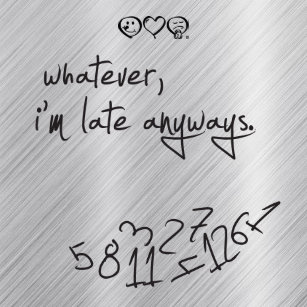 whatever,
i'm late anyways.
5 8 3 11 2 7 12 6